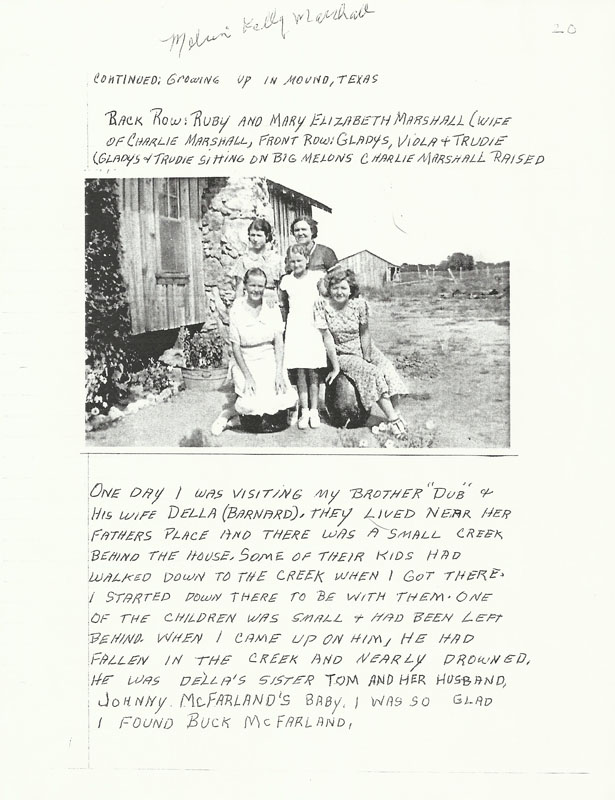 Melvin Kelly Marshall
20
CONTINUED; GROWING UP IN MOUND, TEXAS
BACK ROW: RUBY AND MARY ELIZABETH MARSHALL (WIFE
OF CHARLIE MARSHALL, FRONT ROW: GLADYS, VIOLA & TRUDIE
(GLADYS & TRUDIE SITTING ON BIG MELONS CHARLIE MARSHALL RAISED
ONE DAY I WAS VISITING MY BROTHER "DUB" &
HIS WIFE DELLA (BARNARD). THEY LIVED NEAR HER
FATHERS PLACE AND THERE WAS A SMALL CREEK
BEHIND THE HOUSE. SOME OF THEIR KIDS HAD
WALKED DOWN TO THE CREEK WHEN I GOT THERE.
I STARTED DOWN THERE TO BE WITH THEM. ONE
OF THE CHILDREN WAS SMALL & HAD BEEN LEFT
BEHIND. WHEN I CAME UP ON HIM, HE HAD
FALLEN IN THE CREEK AND NEARLY DROWNED.
HE WAS DELLA'S SISTER TOM AND HER HUSBAND,
JOHNNY McFARLAND'S BABY. I WAS SO GLAD
I FOUND BUCK McFARLAND.